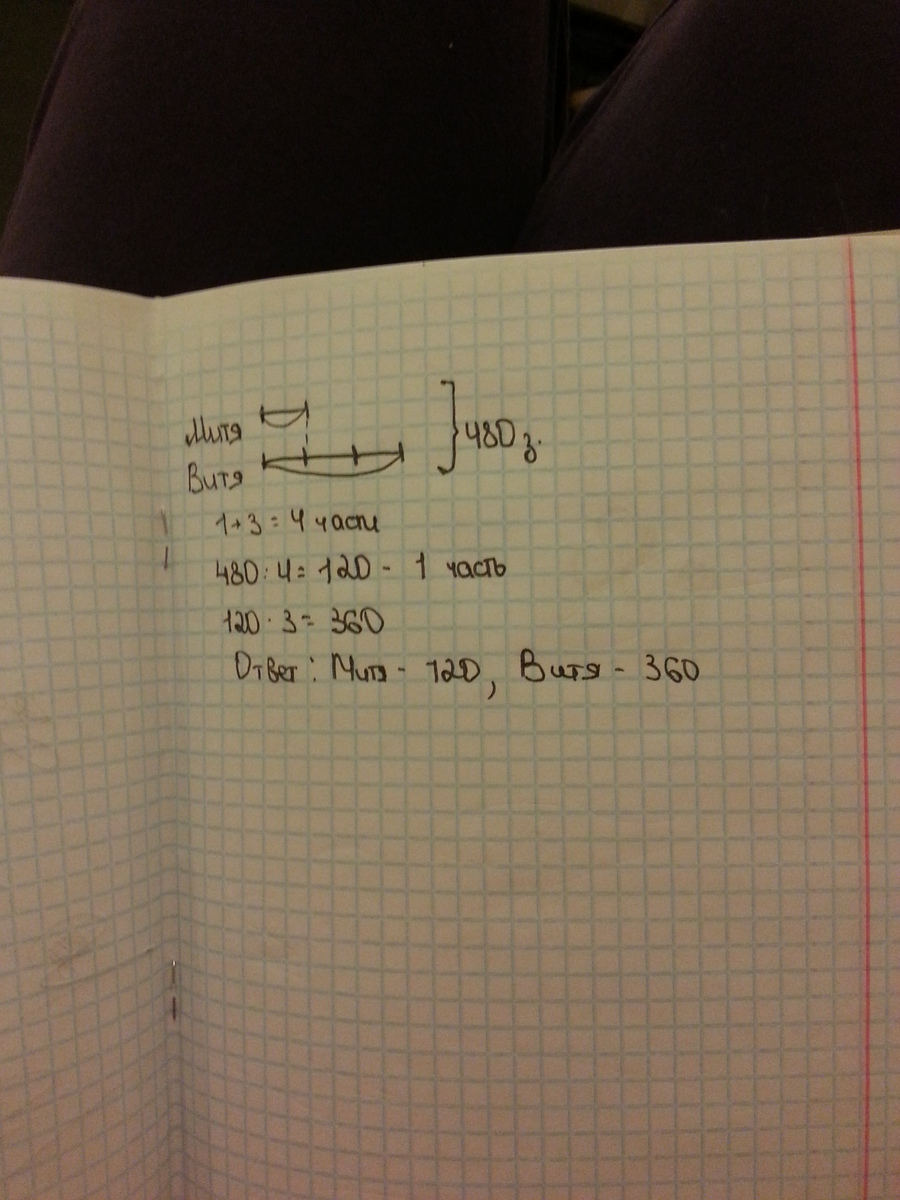 Митя
Витя
}480 з.
1+3=4 части
480:4=120- 1 часть
120·3=360
Ответ: Митя- 120, Витя- 360